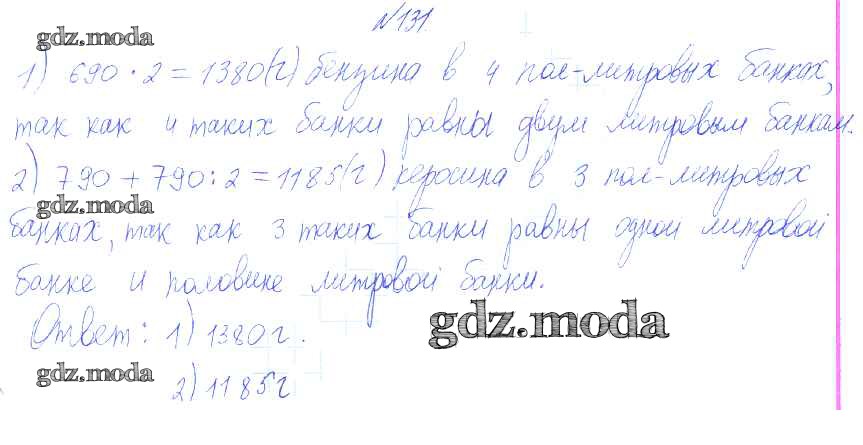 №131
gdz.moda
1) 690 · 2 = 1380(г) бензина в 4 пол-литровых банках,
так как 4 таких банки равны двум литровым банкам.
2) 790 + 790 : 2 = 1185(г) керосина в 3 пол-литровых
gdz.moda
банках, так как 3 таких банки равны одной литровой
банке и половине литровой банки.
Ответ: 1) 1380г.
gdz.moda
gdz.moda
2) 1185г